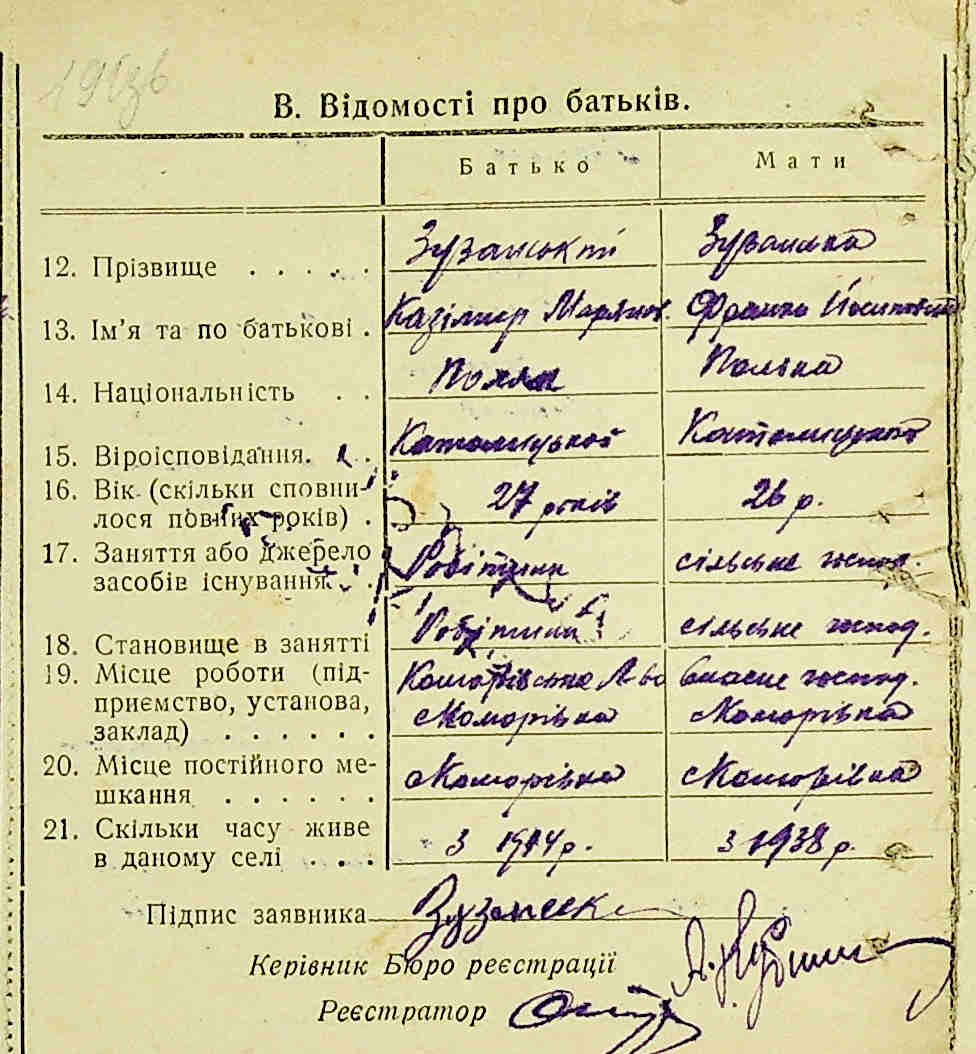 В. Відомості про батьків.
Батько Мати
12. Прізвище . . . . . Зузанський Зузанська
13. Ім'я та по батькові . Казімир Марʼянов. Франка Йосиповна
14. Національність . . Поляк Полька
15. Віроісповідання. . Католицької Католицької
16. Вік (скільки сповни-
лося повних років) . 27 років 26 р.
17. Заняття або джерело
засобів існування. . Робітник сільське господ.
18. Становище в занятті Робітник сільське господ.
19. Місце роботи (під-
приємство, установа,
заклад) . . . . . . Коморівка власне господ. Коморівка
20. Місце постійного ме-
шкання . . . . . . Коморівка Коморівка
21. Скільки часу живе
в даному селі . . . З 1914 р. З 1938 р.
Підпис заявника
Керівник Бюро реєстрації
Реєстратор